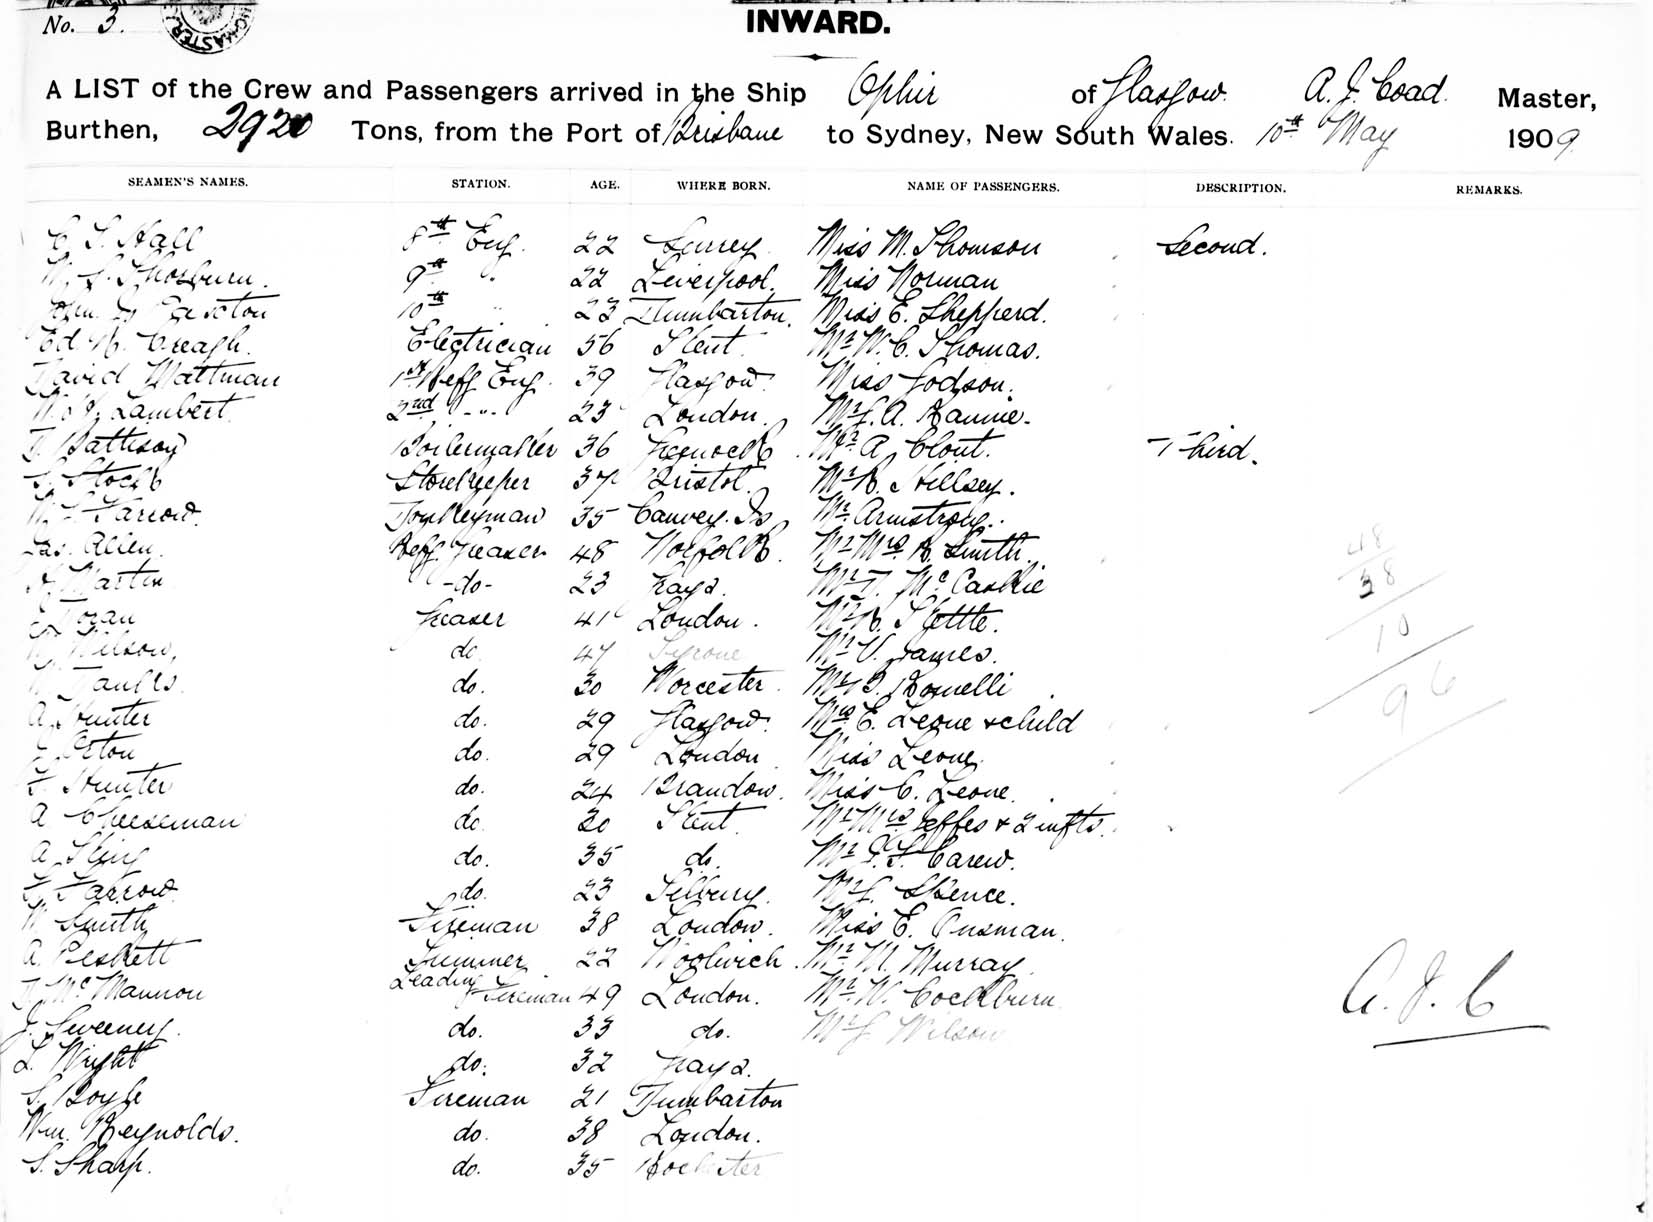 No. 3.
INWARD.
A LIST of the Crew and Passengers arrived in the Ship Ophir of Glasgow. A. J. Coad. Master,
Burthen, 2920 Tons, from the Port of Brisbane to Sydney, New South Wales. 10th May 1909
SEAMEN'S NAMES. STATION. AGE. WHERE BORN. NAME OF PASSENGERS. DESCRIPTION. REMARKS.
Hall 8th Eng. 22 Surrey. Miss M. Thomson Second.
9th " 22 Liverpool. Miss Norman
10th " 23 Dumbarton. Miss E. Shepperd.
Ed. Creagh. Electrician 56 Kent. Mr W. C. Thomas.
David Wattman 1st Reff Eng. 39 Glasgow. Miss Godson.
Lambert. 2nd -"- 23 London. Mr J. A. Rannie.
Boilermaker 36 Greenock Mr A. Clout. Third.
Stock Storekeeper 37 Bristol. Mr R. Hillsey.
Farrow. Donkeyman 35 Canvey. Is Mr. Armstrong.
Jas. Allen. Reff. Greaser 48 Norfolk. Mr Mrs. R. Smith.
Martin -do- 23 Grays. Mr McCaskie
Greaser 41 London. Mr R. Kettle.
Wilson. do. 47 Tyrone Mr V. James.
do. 30 Worcester. Romelli
A. Hunter do. 29 Glasgow. Mrs. E. Leone & child
do. 29 London. Miss Leone.
Hunter do. 24 Brandow. Miss C. Leone.
A. Cheeseman do. 30 Kent. Mr Mrs Jeffes & 2 infts.
A. King do. 35 do. Mr Carew.
Farrow. do. 23 Tilbury. Mr J. Spence.
W. Smith Fireman 38 London. Miss E.
A. Peskett Trimmer 22 Woolwich. Mr. M. Murray.
McMannon Leading Fireman 49 London. Mr. W. Cockburn.
J. Sweeney. do. 33 do. Mr J. Wilson
L. Wright do. 32 Grays.
S. Boyle Fireman 21 Dumbarton
Wm. Reynolds. do. 38 London.
S. Sharp. do. 35 Rochester
48
38
10
96
A. J. C